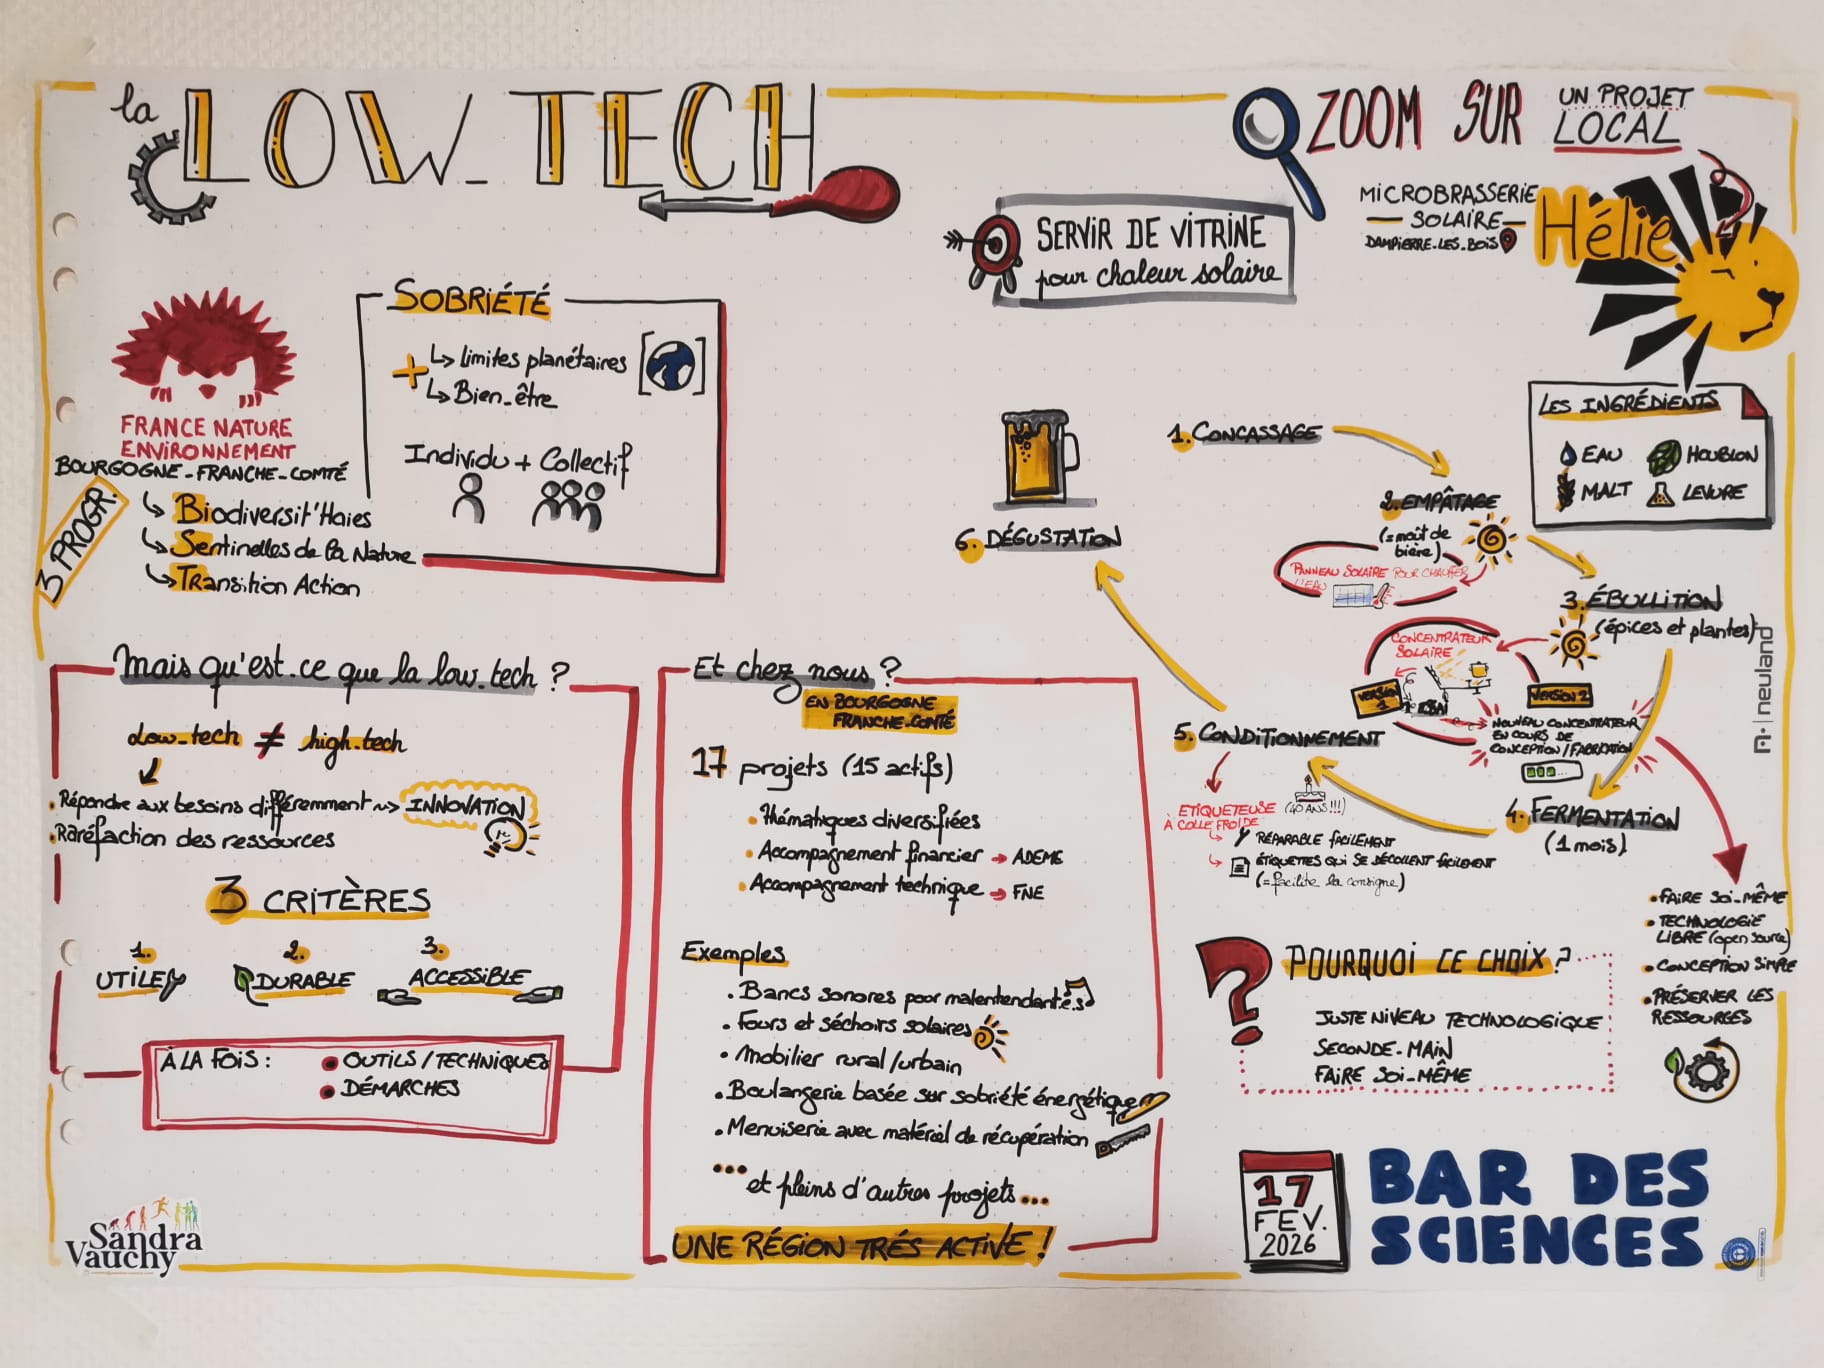 la
LOW_TECH
FRANCE NATURE
ENVIRONNEMENT
BOURGOGNE-FRANCHE-COMTÉ
3 PROGR.
Biodiversit'Haies
Sentinelles de la Nature
TRansition Action
SOBRIÉTÉ
+ limites planétaires
Bien_être
Individu + Collectif
Mais qu'est.ce que la low_tech ?
Low_tech ≠ high.tech
• Répondre aux besoins différemment → INNOVATION
• Raréfaction des ressources
3 CRITÈRES
1.
UTILE
2.
DURABLE
3.
ACCESSIBLE
À LA FOIS :
• OUTILS/TECHNIQUES
• DÉMARCHES
Sandra
Vauchy
Et chez nous ?
EN BOURGOGNE
FRANCHE-COMTÉ
17 projets (15 actifs)
• thématiques diversifiées
• Accompagnement financier → ADEME
• Accompagnement technique → FNE
Exemples
. Bancs sonores pour malentendant.é.s
. Fours et séchoirs solaires
• Mobilier rural/urbain
. Boulangerie basée sur sobriété énergétique
. Menuiserie avec matériel de récupération
... et pleins d'autres projets...
UNE RÉGION TRÉS ACTIVE !
ZOOM SUR
UN PROJET
LOCAL
MICROBRASSERIE
— SOLAIRE —
DAMPIERRE-LES-BOIS
Hélie
SERVIR DE VITRINE
pour chaleur solaire
LES INGRÉDIENTS
EAU
HOUBLON
MALT
LEVURE
1. CONCASSAGE
2. EMPÂTAGE
(= moût de
bière)
PANNEAU SOLAIRE POUR CHAUFFER
L'EAU
3. ÉBULLITION
(épices et plantes)
CONCENTRATEUR
SOLAIRE
VERSION
1
VERSION 2
NOUVEAU CONCENTRATEUR
EN COURS DE
CONCEPTION/FABRICATION
4. FERMENTATION
(1 mois)
5. CONDITIONNEMENT
ETIQUETEUSE
À COLLE FROIDE
(40 ANS!!!)
RÉPARABLE FACILEMENT
ÉTIQUETTES QUI SE DÉCOLLENT FACILEMENT
(= facilite la consigne)
6. DÉGUSTATION
• FAIRE SOI-MÊME
• TECHNOLOGIE
LIBRE (open source)
• CONCEPTION SIMPLE
• PRÉSERVER LES
RESSOURCES
POURQUOI CE CHOIX ?
JUSTE NIVEAU TECHNOLOGIQUE
SECONDE-MAIN
FAIRE SOI-MÊME
17
FEV.
2026
BAR DES
SCIENCES
neuland